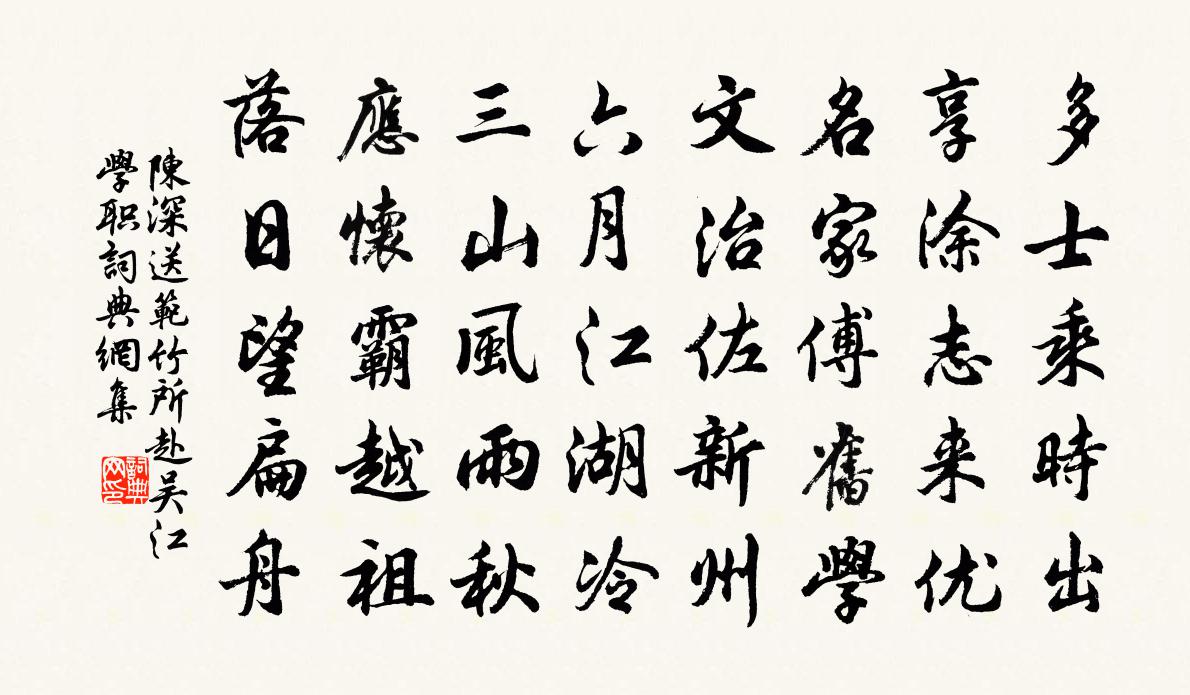 多士乘時出
享涂志来优
名家傅舊學
文治佐新州
六月江湖冷
三山風雨秋
應懷霸越祖
落日望扁舟
陳深送範竹所赴吴江
學职詞典網集
詞典網印